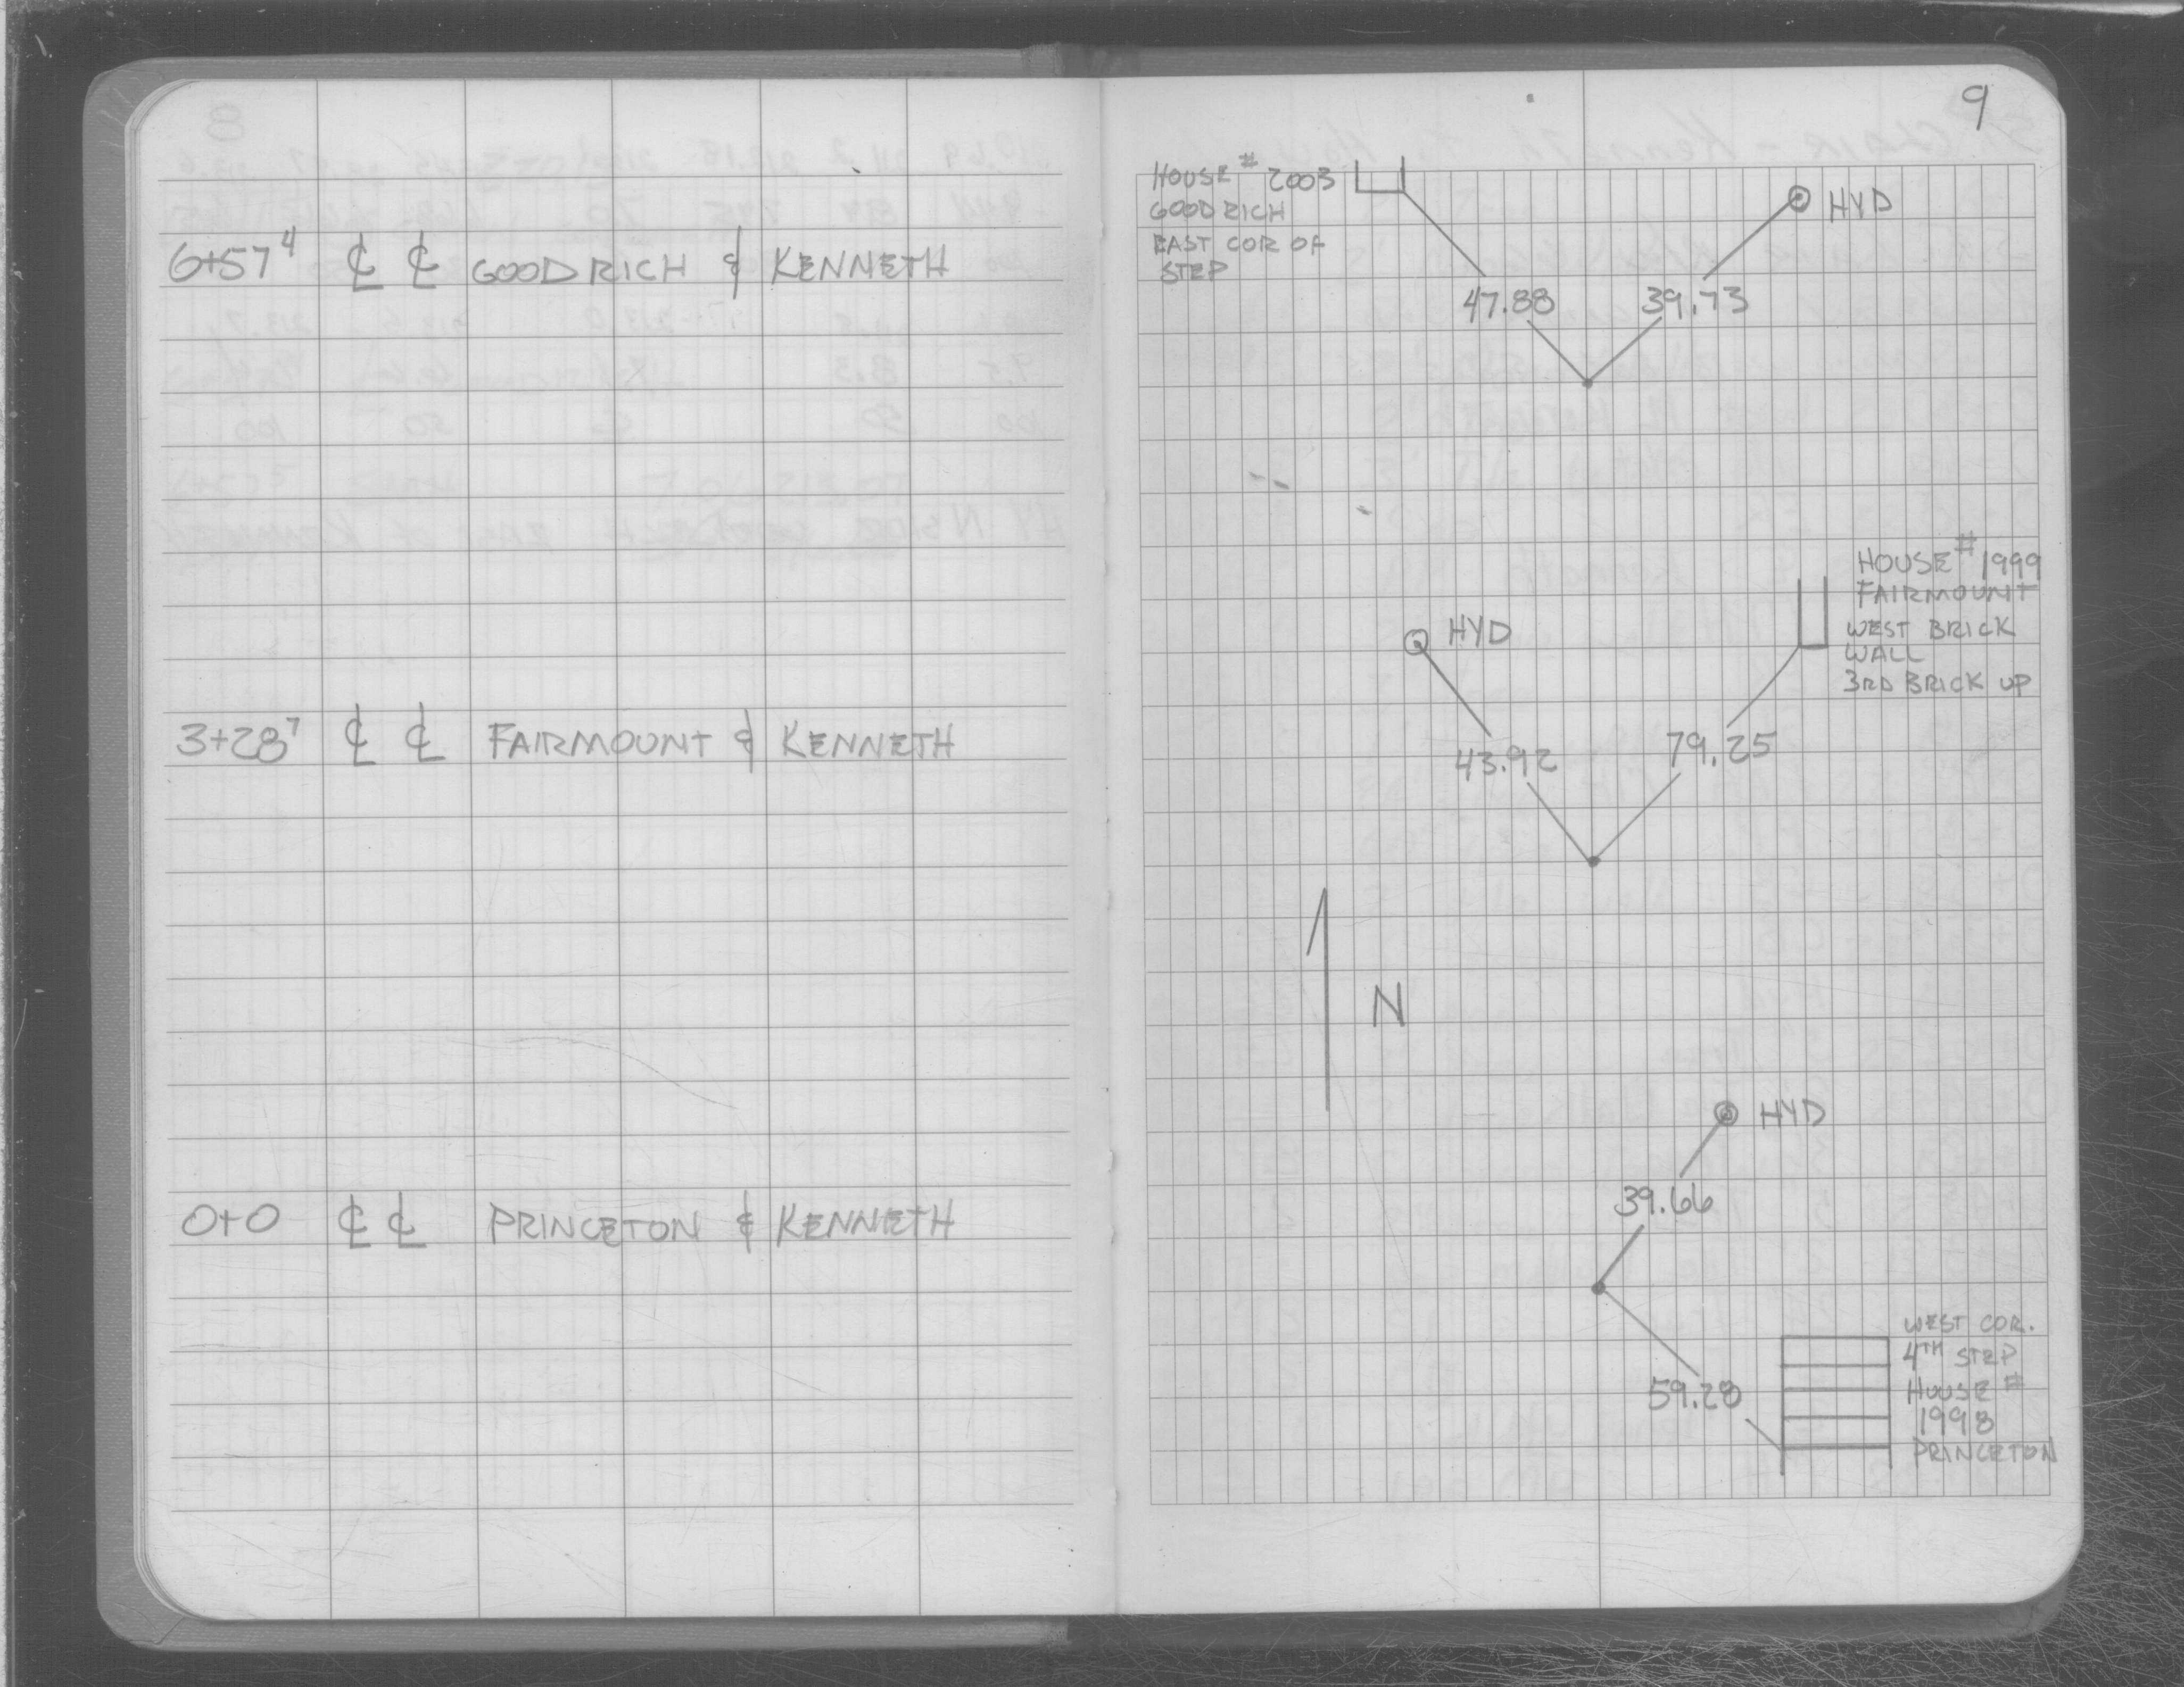 6+57⁴ ℄ ℄ GOODRICH & KENNETH
3+28⁷ ℄ ℄ FAIRMOUNT & KENNETH
0+0 ℄ ℄ PRINCETON & KENNETH
9
HOUSE # 2003
GOODRICH
EAST COR OF
STEP
HYD
47.88
39.73
HOUSE # 1999
FAIRMOUNT
WEST BRICK
WALL
3RD BRICK UP
HYD
43.92
79.25
N
HYD
39.66
59.28
WEST COR.
4TH STEP
HOUSE #
1998
PRINCETON